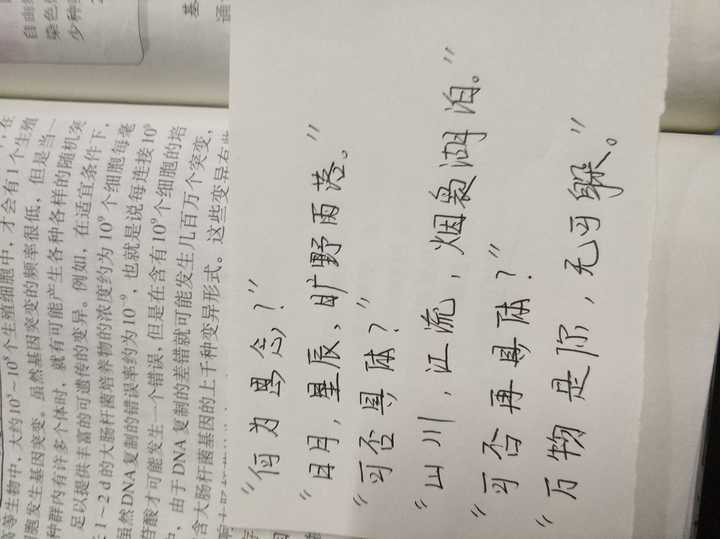 自由组
染色
少种
高等生物中,大约10⁵~10⁸个生殖细胞中,才会有1个生殖
胞发生基因突变。虽然基因突变的频率很低,但是当一
种群内有许多个体时,就有可能产生各种各样的随机突
足以提供丰富的可遗传的变异。例如,在适宜条件下,
1~2 d的大肠杆菌培养物的浓度约为10⁹个细胞每毫
虽然DNA复制的错误率约为10⁻⁹,也就是说每连接10⁹
苷酸才可能发生一个错误,但是在含有10⁹个细胞的培
中,由于DNA复制的差错就可能发生几百万个突变,
含大肠杆菌基因的上千种变异形式。这些变异有些
基
通
“何为思念?”
“日月,星辰,旷野雨落。”
“可否具体?”
“山川,江流,烟袅湖泊。”
“可否再具体?”
“万物是你,无可躲。”